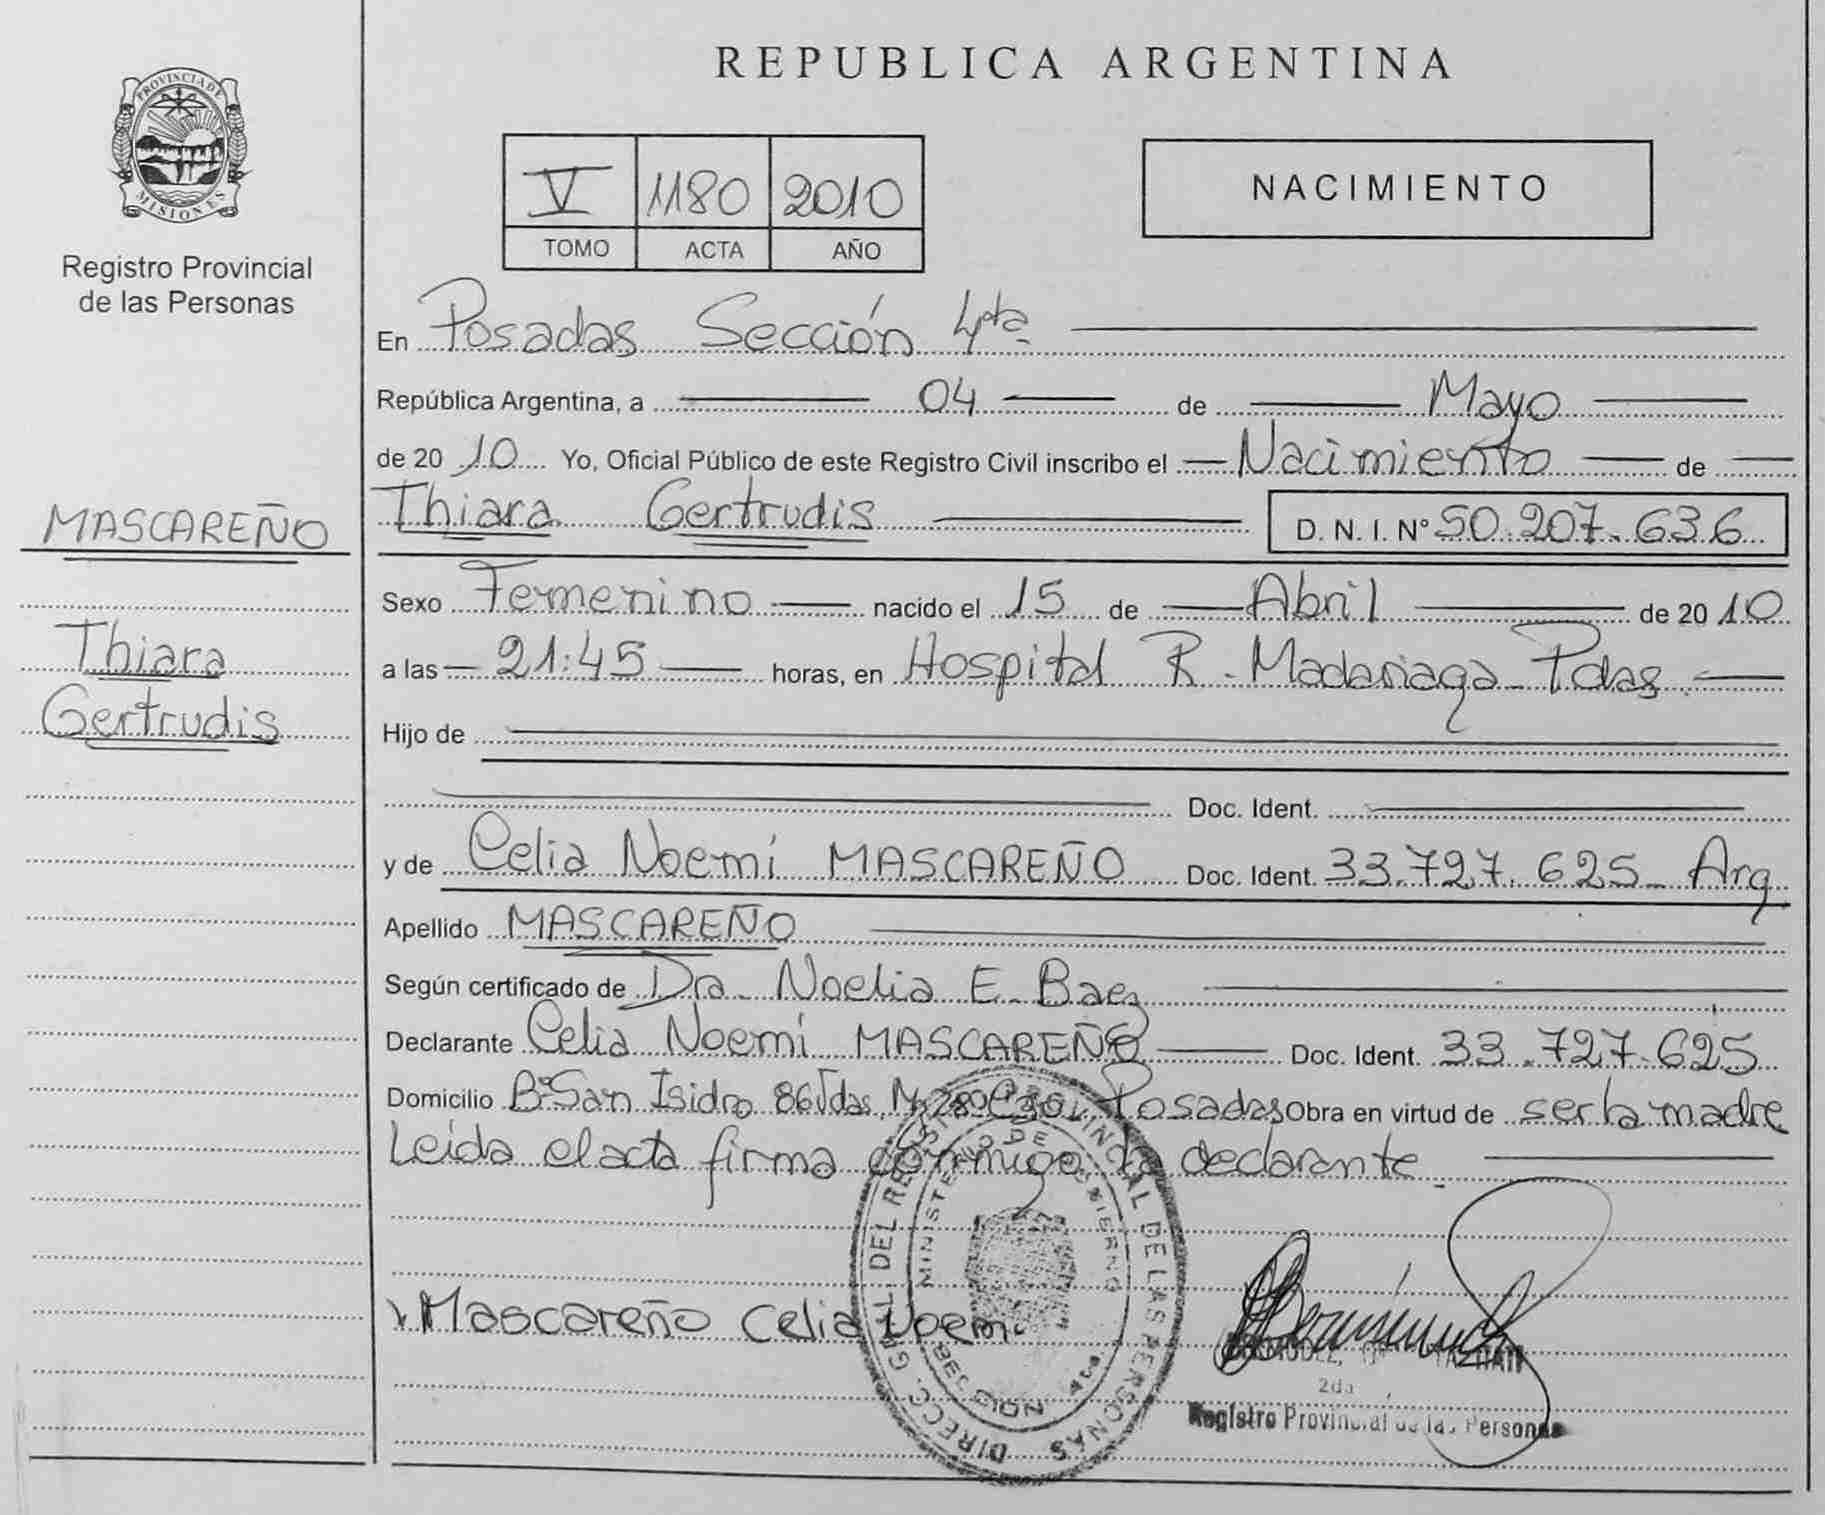 REPUBLICA ARGENTINA
PROVINCIA DE
MISIONES
Registro Provincial
de las Personas
V 1180 2010
TOMO ACTA AÑO
NACIMIENTO
MASCAREÑO
Thiara
Gertrudis
En Posadas Sección 4ta
República Argentina, a 04 de Mayo
de 2010 Yo, Oficial Público de este Registro Civil inscribo el Nacimiento de
Thiara Gertrudis D. N. I. Nº 50.207.636
Sexo Femenino nacido el 15 de Abril de 2010
a las 21:45 horas, en Hospital R. Madariaga Pdas.
Hijo de
Doc. Ident.
y de Celia Noemí MASCAREÑO Doc. Ident. 33.727.625 Arg.
Apellido MASCAREÑO
Según certificado de Dra. Noelia E. Baez
Declarante Celia Noemí MASCAREÑO Doc. Ident. 33.727.625
Domicilio Bº San Isidro Posadas Obra en virtud de ser la madre
Leída el acta firma conmigo la declarante.
Mascareño Celia Noemi
DIRECC. GRAL. DEL REGISTRO PROVINCIAL DE LAS PERSONAS
MINISTERIO DE GOBIERNO
2da
Registro Provincial de las Personas